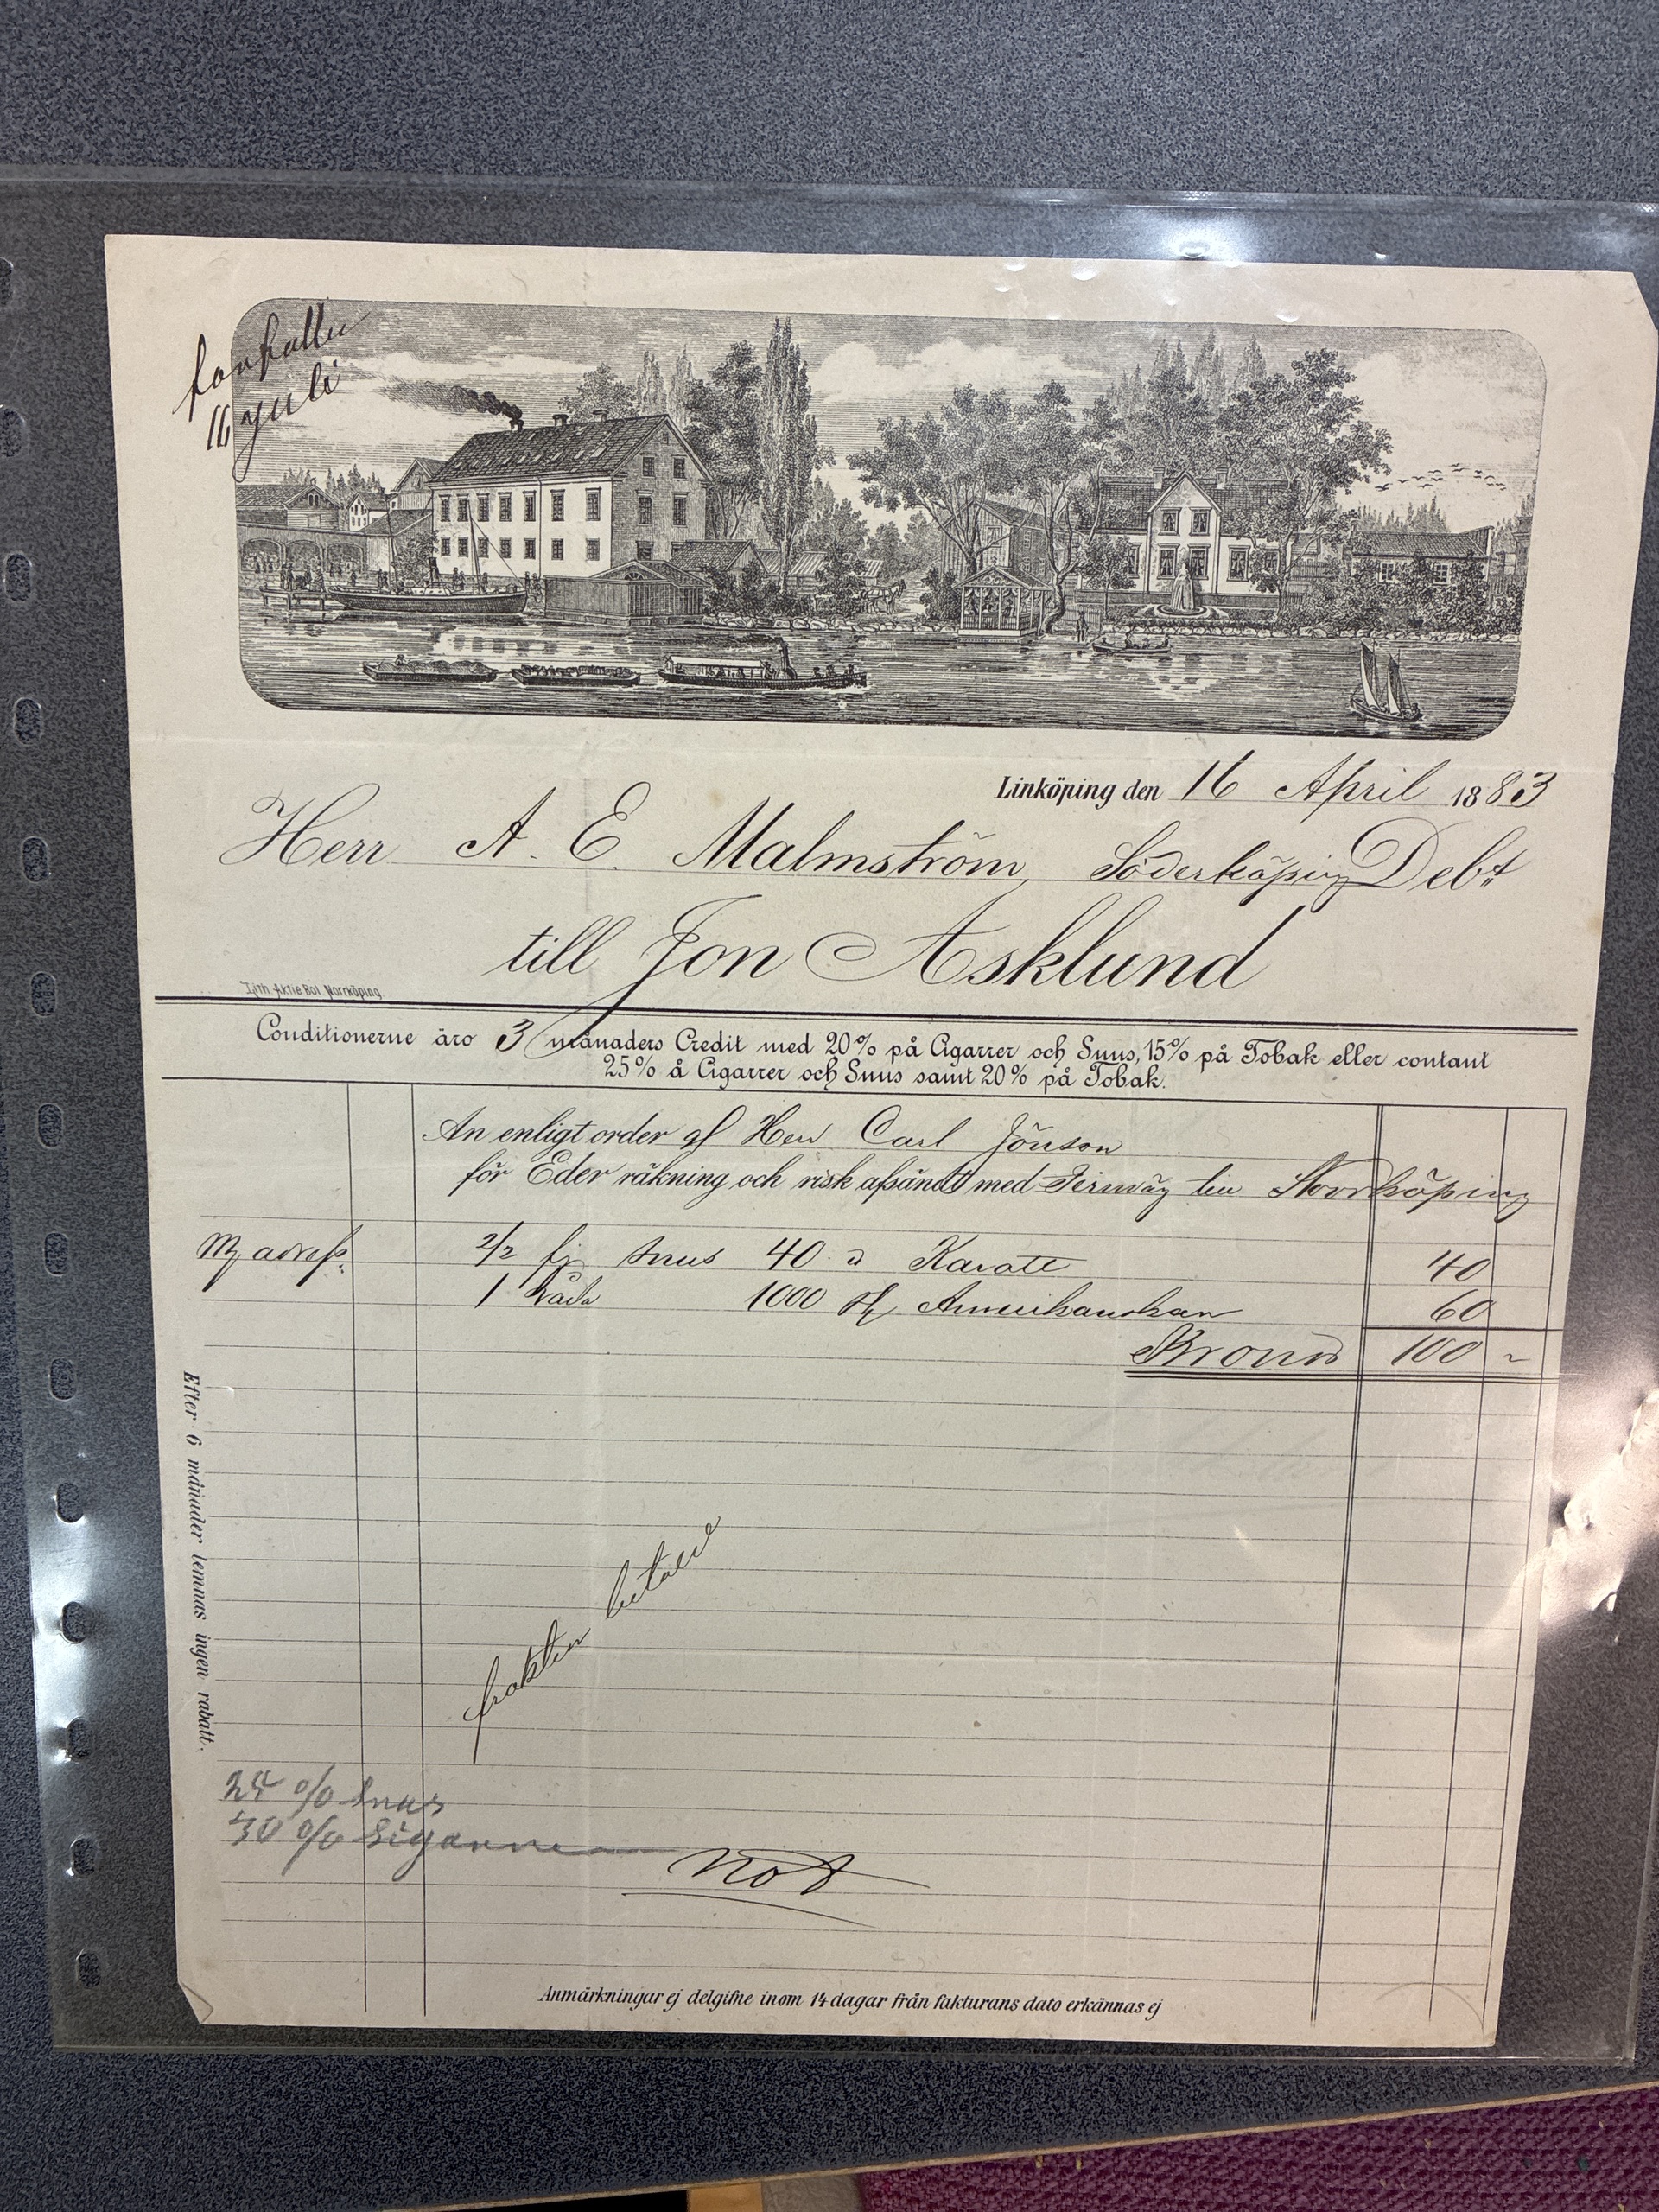 förfaller
16 Juli
Linköping den 16 April 1883
Herr A. E. Malmström, Söderköping Debt
till Jon Asklund
Lith. Aktie Bol. Norrköping
Conditionerne äro 3 månaders Credit med 20% på Cigarrer och Snus, 15% på Tobak eller contant
25% å Cigarrer och Snus samt 20% på Tobak.
An enligt order af Herr Carl Jönson
för Eder räkning och risk afsändt med Jernväg till Norrköping
adress. 2/2 fj snus 40 Karott 40
1 låda 1000 st Amerikanskan 60
Kronor 100 ~
Efter 6 månader lemnas ingen rabatt.
frakten betald
% Snus
30 % Sigarrer
not
Anmärkningar ej delgifne inom 14 dagar från fakturans dato erkännas ej